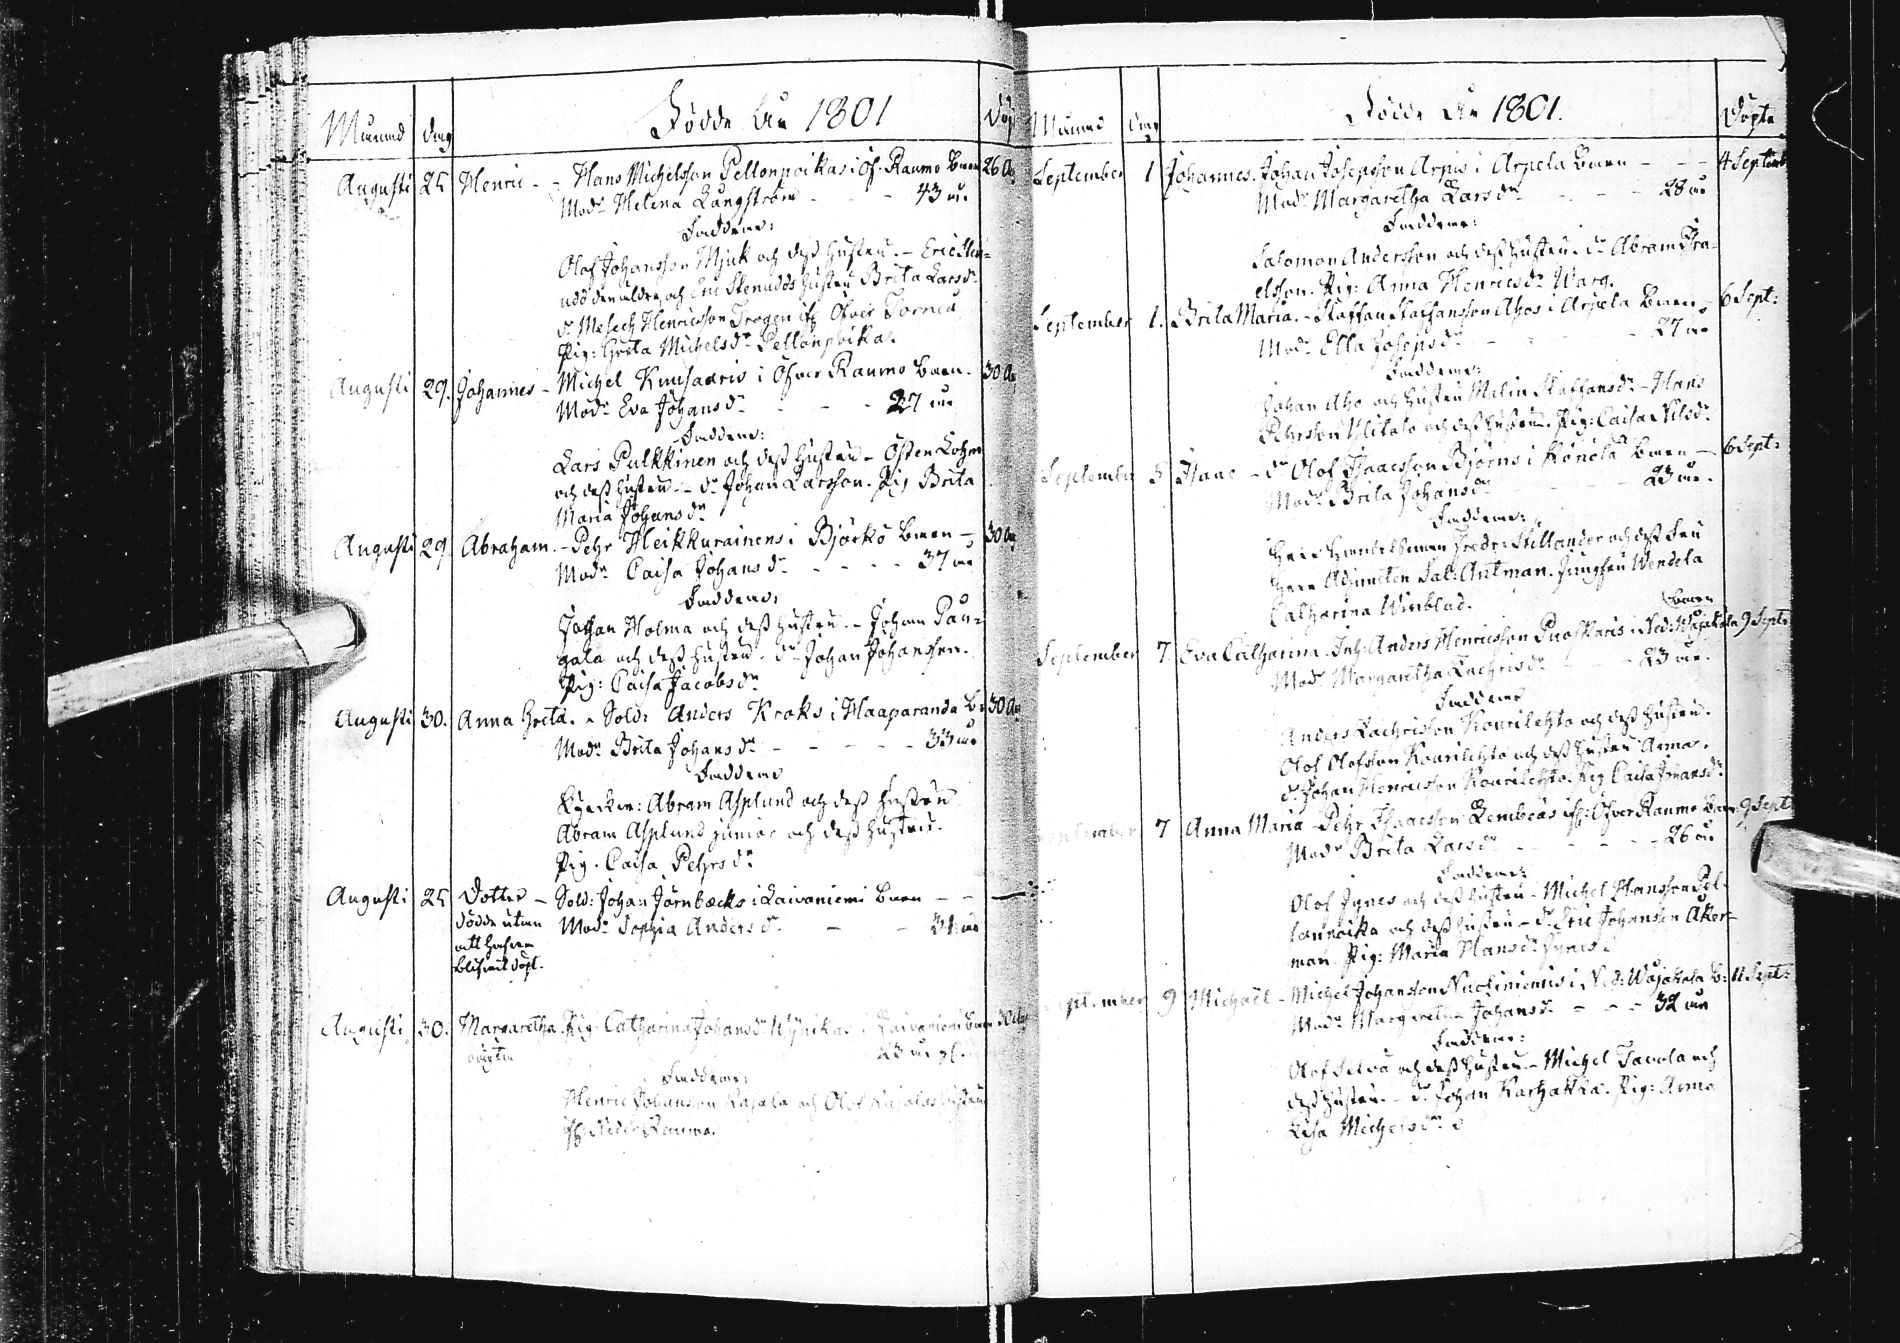 Födde År 1801
Månad dag Döp
Augusti 25 Henric - Hans Michelsson Pellonpoikas i Öf. Raumo Barn 26 A.
Modr Helena Långström - - - 43 år.
Faddrar:
Olof Johansson Mjuk och dess hustru. - Eric Sten-
udd den äldre, och Eric Stenudds hustru Brita Larsdr
dr: Mesech Henricsson Trogen
Pig: Greta Michelsdr Pellonpoika.
Augusti 29. Johannes - Michel Knusaaris i Öfver Raumo Barn. 30 A
Modr Eva Johansdr - - - 27 år
Faddrar:
Lars Pulkkinen och dess hustru - Östen Lohm
och dess hustru - dr Johan Larsson. Pig Brita
Maria Johansdr
Augusti 29. Abraham. - Pehr Heikkurainens i Björkö Barn - 30 A
Modr Caisa Johansdr - - - - 37 år
Faddrar:
Johan Holma och dess hustru. - Johan Pau-
gala och dess hustru - dr Johan Johansson.
Pig: Caisa Jacobsdr
Augusti 30. Anna Greta. - Sold: Anders Kroks i Haaparanda B: 30 A
Modr Brita Johansdr - - - - - 33 år
Faddrar
Abram Asplund och dess hustru
Abram Asplund junior och dess hustru.
Pig. Caisa Pehrsdr
Augusti 25 Dotter - Sold: Johan Jernbäcks i Laivaniemi Barn - - -
dödde utan Modr Sophia Andersdr - - 31 år
att hafva
blifvit döpt.
Augusti 30. Margaretha Pig: Catharina Johansdr i Laivaniemi Barn 30 Aug
oäkta 23 år
Faddrar:
Henric Johansson Kajala och Olof Kajalas hustru
Neder Raumo.
Födde År 1801.
Månad dag Döpte
September 1 Johannes. Johan Josepsson Arpis i Arpela Barn - - - 4 Septemb
Modr Margaretha Larsdr - - - 28 år
Faddrar:
Salomon Andersson och dess hustru. dr Abram Isra-
elsson. Pig: Anna Henricsdr Warg.
September 1. Brita Maria. - Staffan Staffansson Ahos i Arpela Barn - 6 Sept:
Modr Ella Josepsdr - - - 27 år
Faddrar:
Johan Aho och hustru Malin Staffansdr - Hans
Pehrsson Ylitalo och dess hustru. Pig: Caisa Nilsdr
September 5 Isaac - dr Olof Isaacsson Björns i Könölä Barn - 6 Sept:
Modr Brita Johansdr - - - 23 år.
Faddrar:
Herr Stillander och dess Fru
Herr Adjuncten Sal: Antman. Jungfru Wendela
Catharina Winblad.
Barn
September 7. Eva Catharina. Inh: Anders Henricsson Puoskaris i Ned: Wojakala 9 Sept:
Modr Margaretha Zachrisdr - - - 23 år.
Faddrar
Anders Zachrisson Kourilehto och dess hustru.
Olof Olofsson Kourilehto och dess hustru Anna.
dr Johan Henricsson Kourilehto. Pig Caisa Johansdr
September 7 Anna Maria - Pehr Isaacsson Lembeas Öfver Raumo Barn 9 Sept
Modr Brita Larsdr - - - - - 26 år
Faddrar:
Olof Jynes och dess hustru - Michel Hansson Pel-
lonpoika och dess hustru - dr Eric Johansson Åker-
man. Pig: Maria Hansdr Jynes
September 9 Michael - Michel Johansson Nuoliniemis i Ned: Wojakala B: 11 Sept:
Modr Margaretha Johansdr - - - 32 år
Faddrar:
Olof Selva och dess hustru - Michel Tavola och
dess hustru. - dr Johan Karhakka. Pig: Anna
Lisa Michelsdr